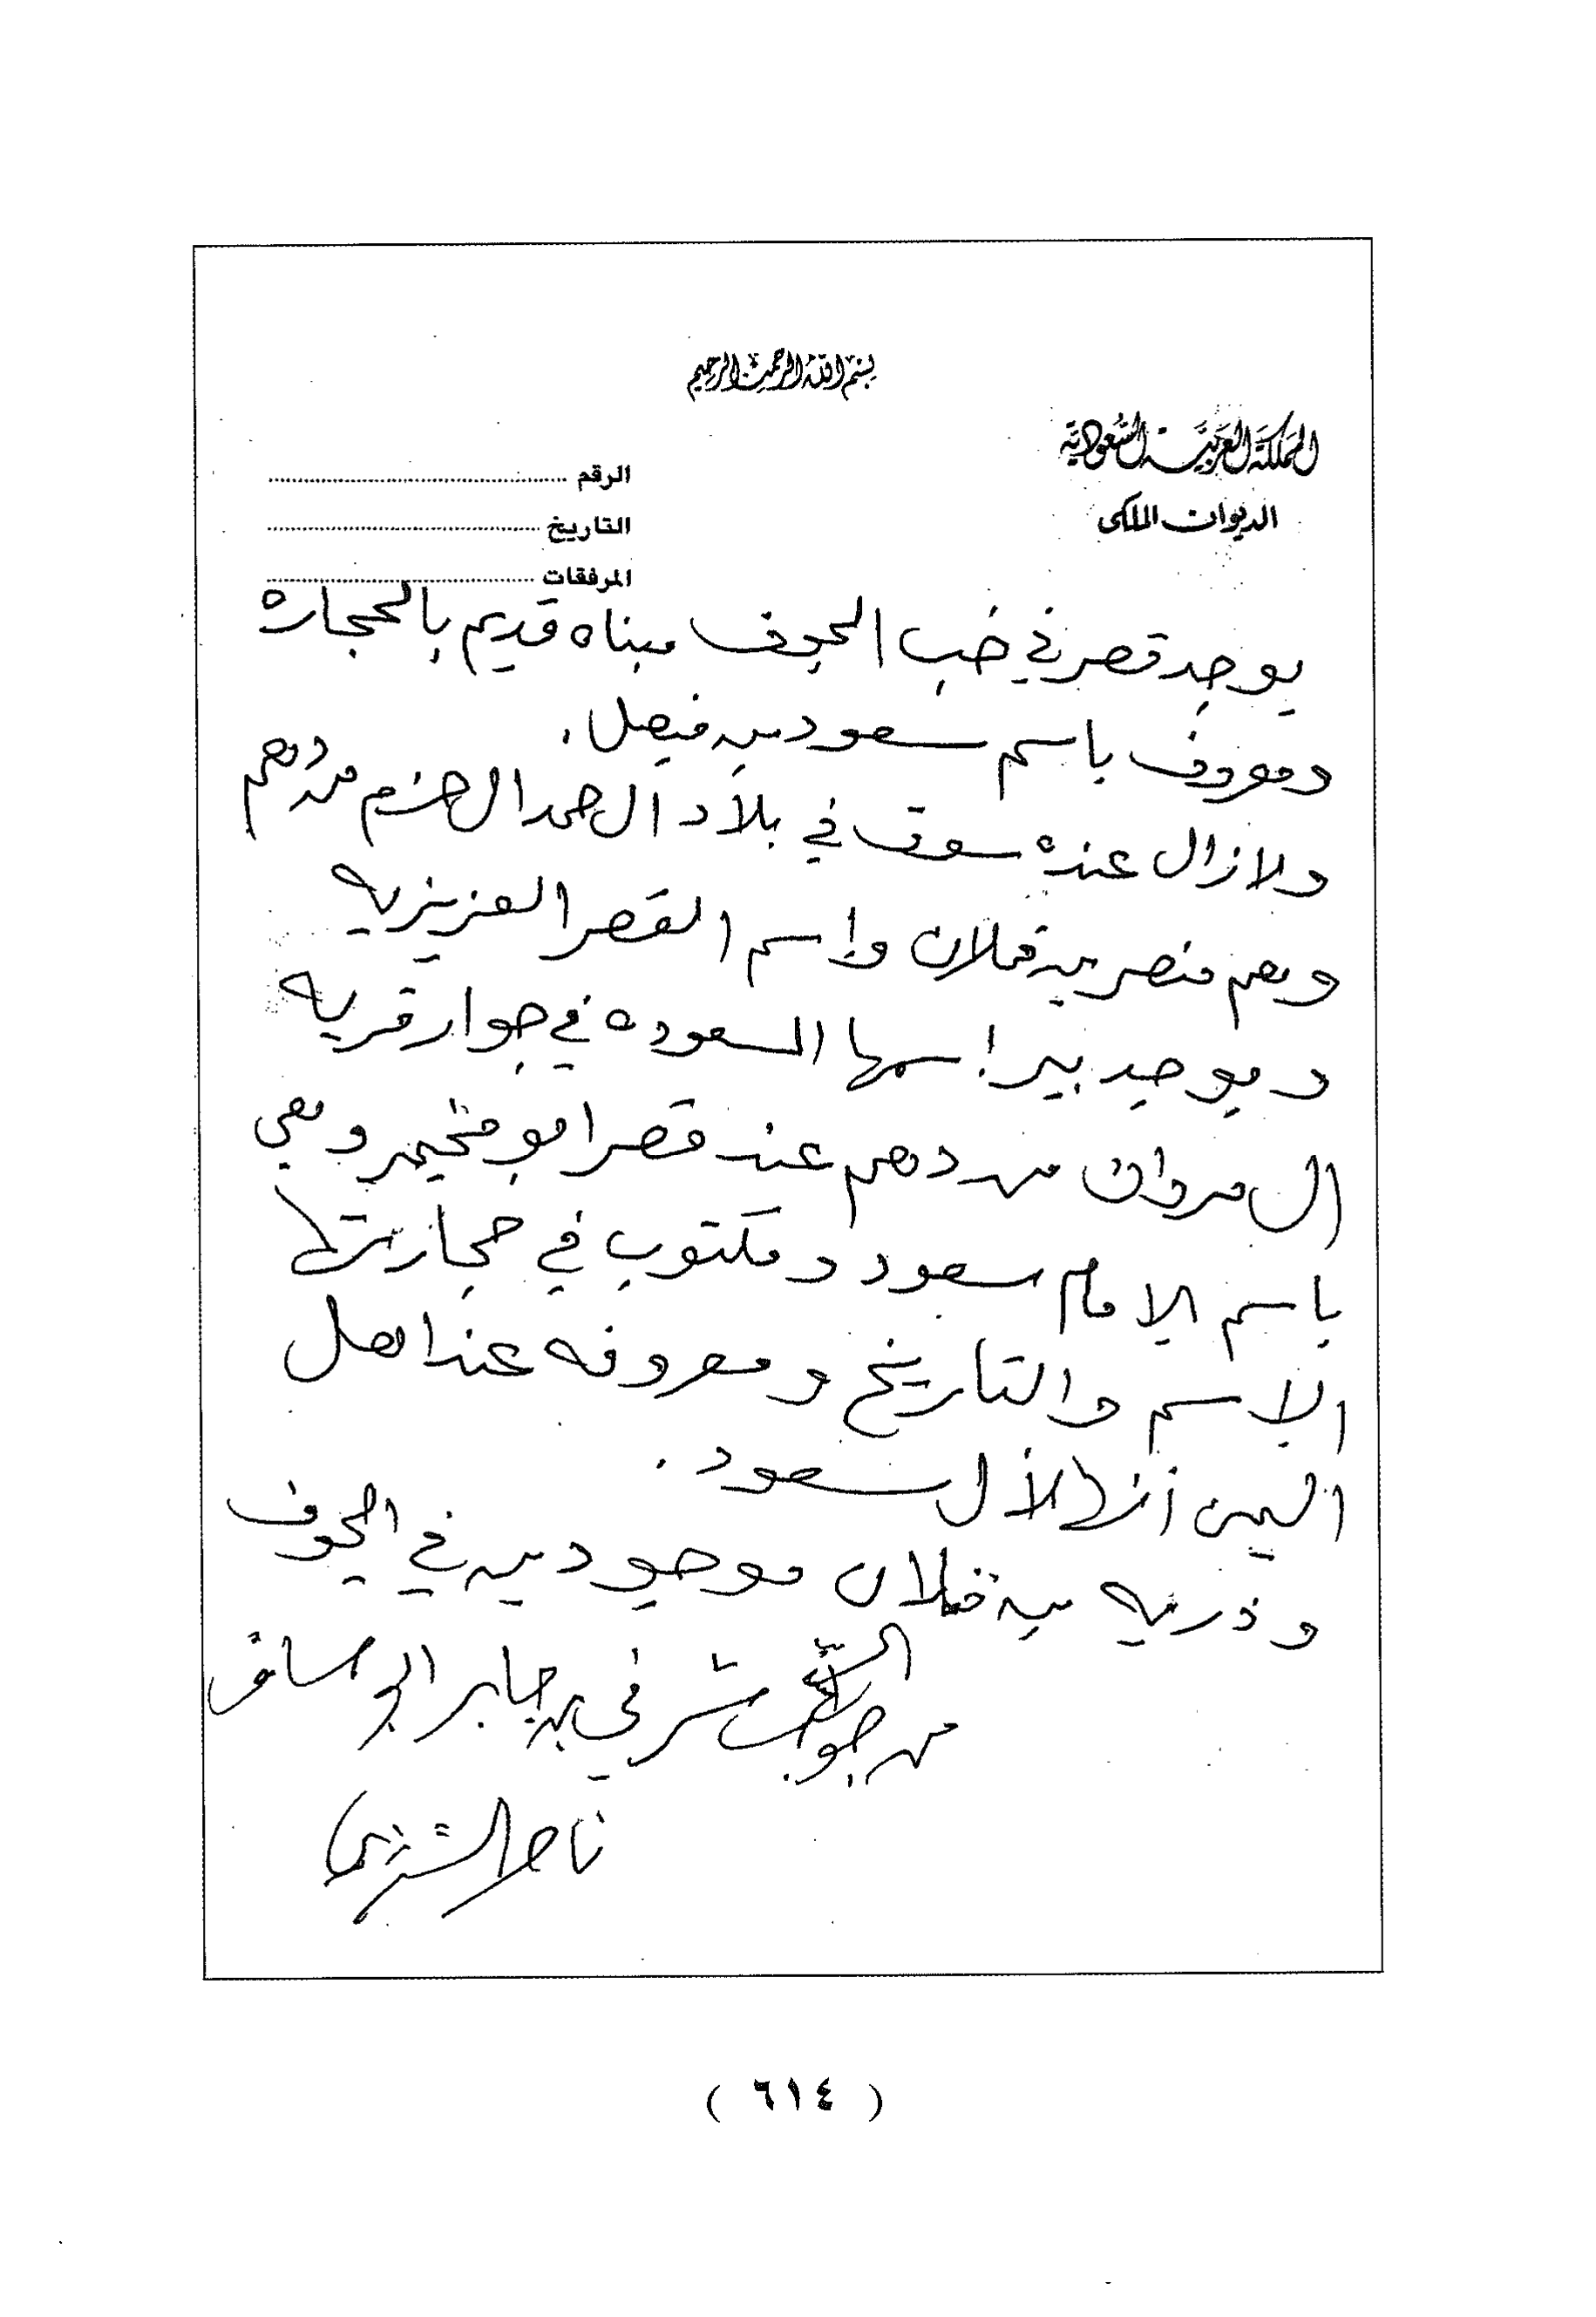 بسم الله الرحمن الرحيم
المملكة العربية السعودية
الديوان الملكي
الرقم
التاريخ
المرفقات
يوجد قصر في خب الجوف مبناه قديم بالحجاره
ومعروف باسم سعود بن فيصل.
ولازال عنده سوق في بلاد ال حمد ال حزم من دهم
وهم منصر بن قملان وإسم القصر العزيزيه
ويوجد بير إسمها السعوده في جوار قريه
ال مروان من دهم عند قصر ابو منخير وهي
باسم الامام سعود ومكتوب في حجارتها
الاسم والتاريخ ومعروفه عند اهل
اليمن أنها لأل سعود.
وذريه بن قملان موجودين في الجوف
من جواب الشيخ مشرفي بن جابر ابو ساق
ناصر الشثري
( ٦١٤ )